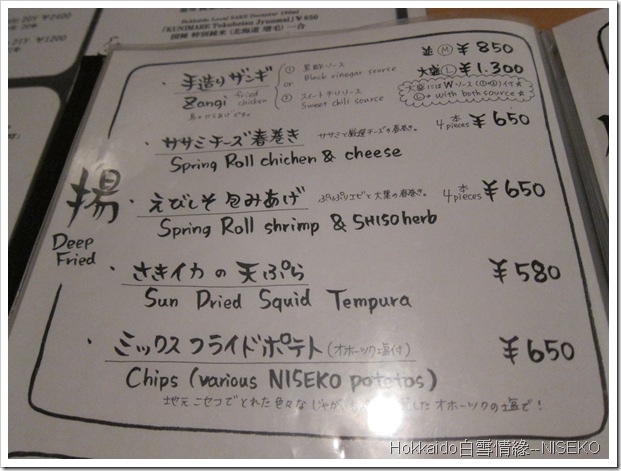 ¥1200
Hokkaido Local SAKE
「KUNIMARE Tokubetsu Jyunmai」¥650
国稀 特別純米(北海道 増毛)一合
揚
Deep
Fried
・手造りザンギ
Zangi fried chicken
① 黒酢ソース
Black vinegar source
or
② スイートチリソース
Sweet chili source
並 Ⓜ ¥850
大盛 Ⓛ ¥1,300
大盛にはWソース(①+②)付★
Ⓛ→ with both source★
・ササミチーズ春巻き ササミと厳選チーズの春巻き。 4本 pieces ¥650
Spring Roll chichen & cheese
・えびしそ包みあげ ぷりぷりエビと大葉の春巻き。 4本 pieces ¥650
Spring Roll shrimp & SHISO herb
・さきイカの天ぷら ¥580
Sun Dried Squid Tempura
・ミックスフライドポテト(オホーツク塩付) ¥650
Chips (various NISEKO potetos)
地元ニセコでとれた色々なじゃがいも した オホーツクの塩で!
Hokkaido白雪情緣--NISEKO